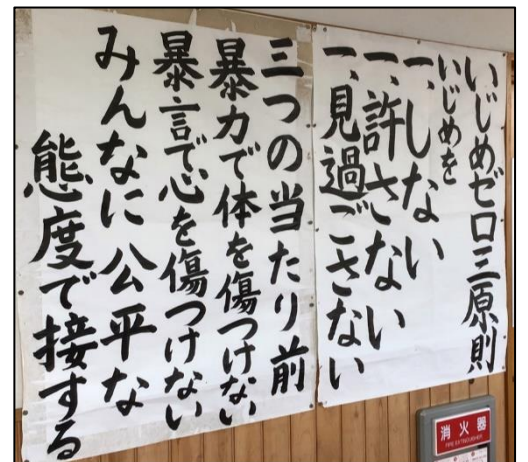 いじめゼロ三原則
いじめを
一、しない
一、許さない
一、見過ごさない
三つの当たり前
暴力で体を傷つけない
暴言で心を傷つけない
みんなに公平な
態度で接する
消火器
FIRE EXTINGUISHER